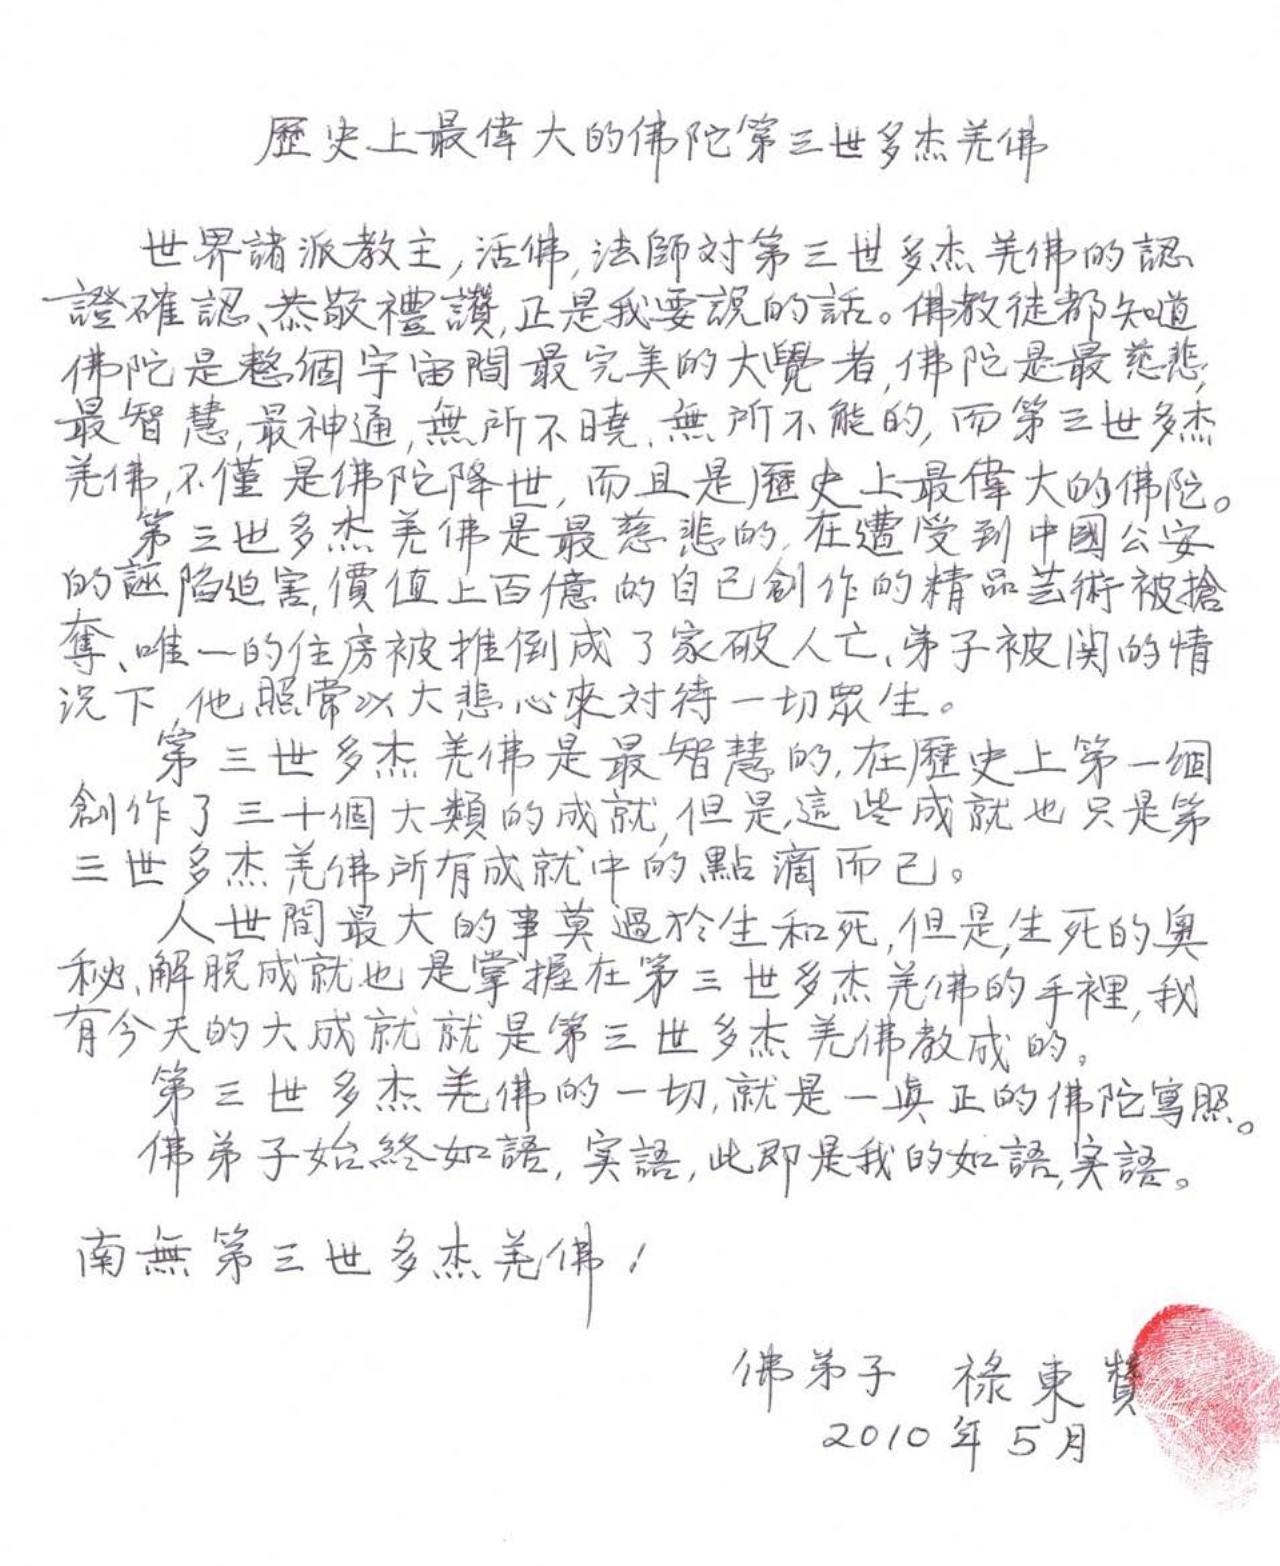 歷史上最偉大的佛陀第三世多杰羌佛
世界諸派教主,活佛,法師对第三世多杰羌佛的認
證確認、恭敬禮讚,正是我要說的話。佛教徒都知道
佛陀是整個宇宙間最完美的大覺者,佛陀是最慈悲,
最智慧,最神通,無所不曉、無所不能的,而第三世多杰
羌佛,不僅是佛陀降世,而且是歷史上最偉大的佛陀。
第三世多杰羌佛是最慈悲的,在遭受到中國公安
的誣陷迫害,價值上百億的自己創作的精品芸術被搶
奪、唯一的住房被推倒成了家破人亡、弟子被関的情
況下,他照常以大悲心來对待一切眾生。
第三世多杰羌佛是最智慧的,在歷史上第一個
創作了三十個大類的成就,但是,這些成就也只是第
三世多杰羌佛所有成就中的點滴而已。
人世間最大的事莫過於生和死,但是,生死的奧
秘、解脫成就也是掌握在第三世多杰羌佛的手裡,我
有今天的大成就就是第三世多杰羌佛教成的。
第三世多杰羌佛的一切,就是一真正的佛陀寫照。
佛弟子始終如語,実語,此即是我的如語,実語。
南無第三世多杰羌佛!
佛弟子 祿東贊
2010年5月